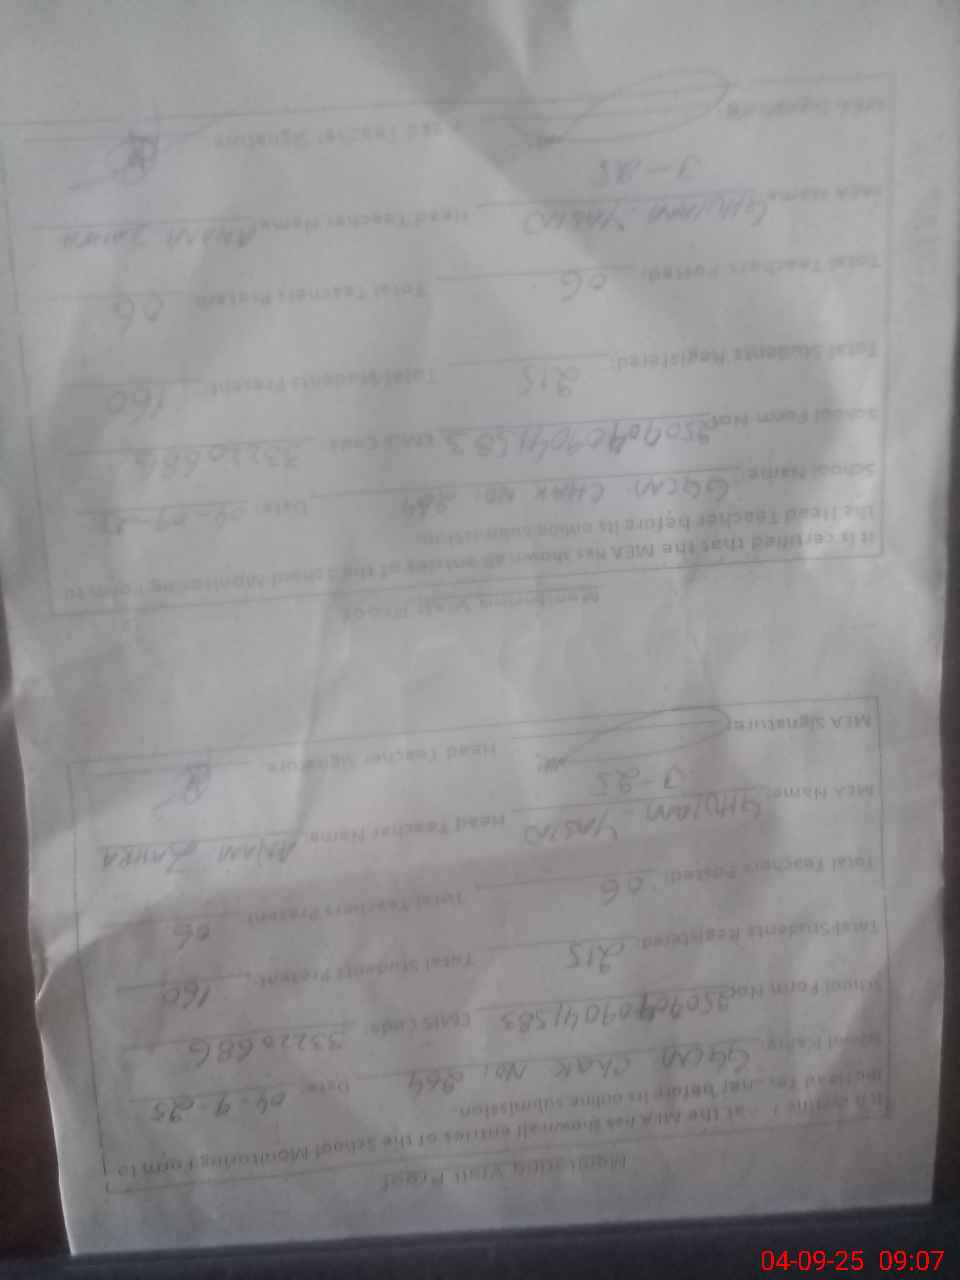 Monitoring Visit Proof
It is certified that the MEA has shown all entries of the School Monitoring Form to
the Head Teacher before its online submission.
School Name: GGCM CHAK NO: 264 Date: 04-9-25
School Form No: 33220686
Total Students Registered: 215 Total Students Present: 160
Total Teachers Posted: 06 Total Teachers Present: 06
MEA Name: GHULAM YASIN Head Teacher Name: ANJAM ZAHRA
J-25
MEA Signature: Head Teacher Signature:
Monitoring Visit Proof
It is certified that the MEA has shown all entries of the School Monitoring Form to
the Head Teacher before its online submission.
School Name: CHAK NO: 264 Date: 04-09-25
School Form No: EMIS Code: 33220686
Total Students Registered: 215 Total Students Present: 160
Total Teachers Posted: 06 Total Teachers Present: 06
MEA Name: GHULAM YASIN Head Teacher Name: ANJAM ZAHRA
J-25
MEA Signature: Head Teacher Signature:
04-09-25 09:07